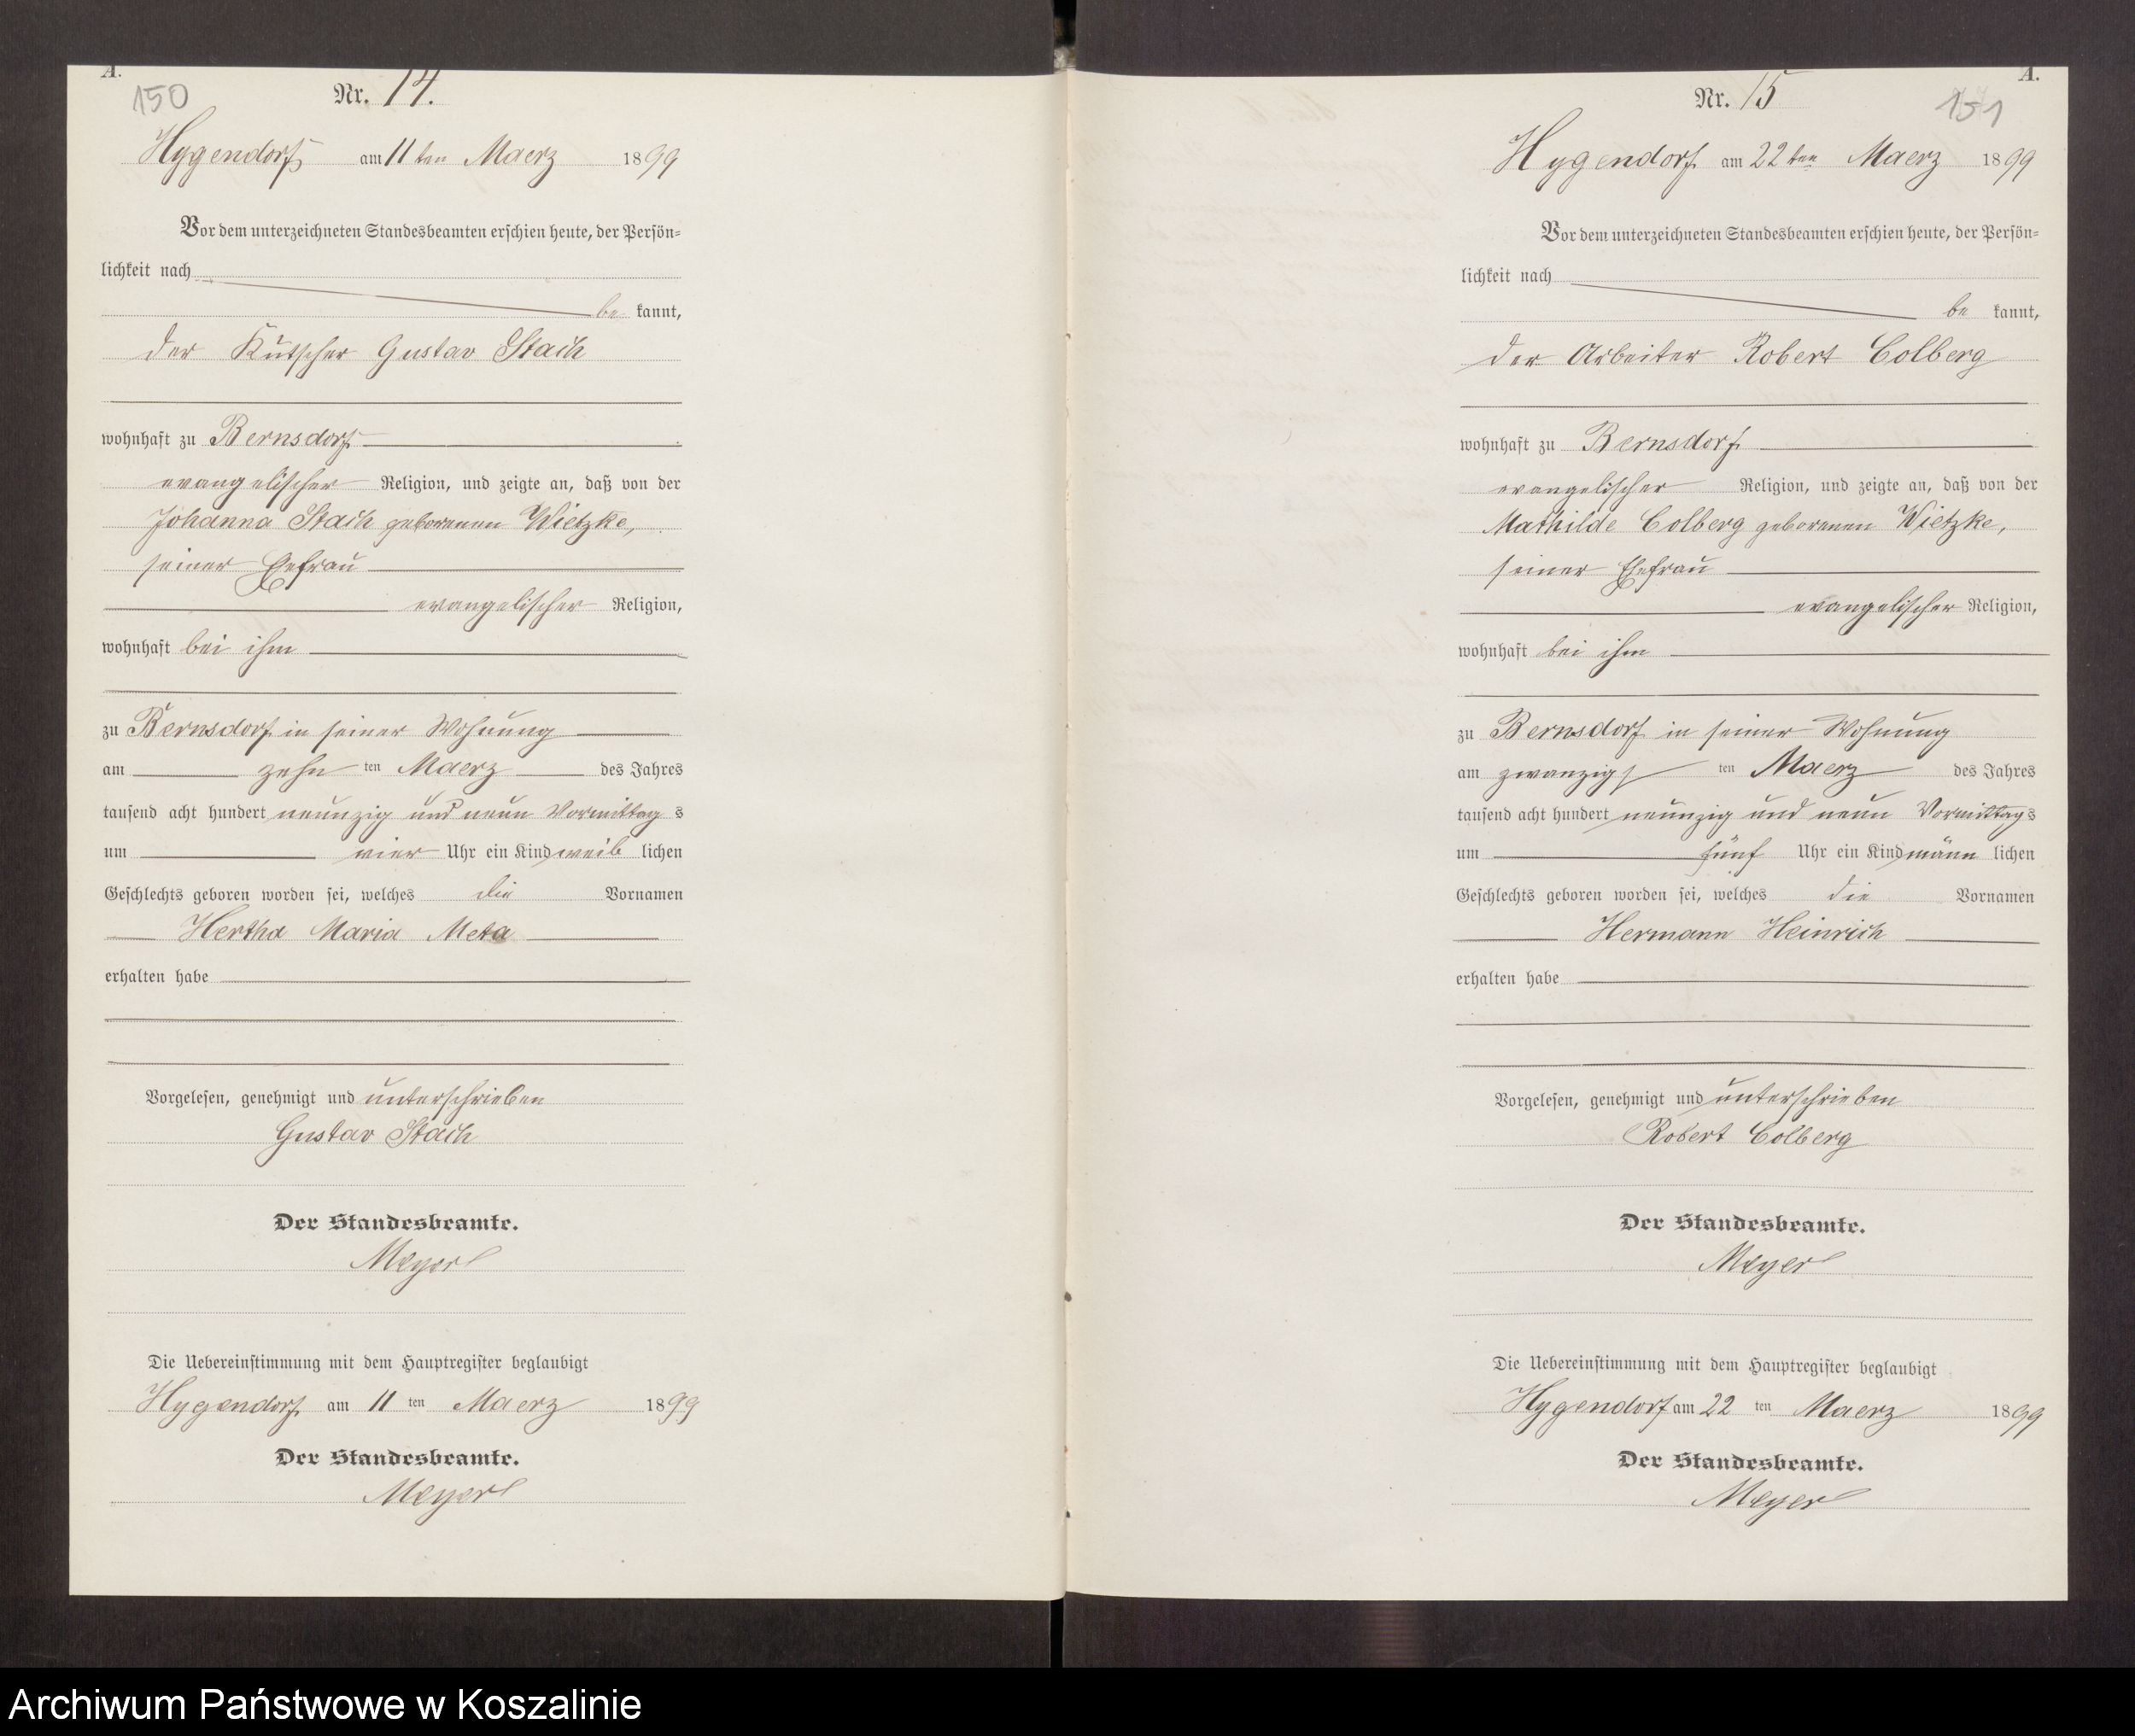 A.
150
Nr. 14.
Hygendorf am 11ten Maerz 1899
Vor dem unterzeichneten Standesbeamten erschien heute, der Persön=
lichkeit nach
be kannt,
der Kutscher Gustav Stach
wohnhaft zu Bernsdorf
evangelischer Religion, und zeigte an, daß von der
Johanna Stach geborenen Wietzke,
seiner Ehefrau
evangelischer Religion,
wohnhaft bei ihm
zu Bernsdorf in seiner Wohnung
am zehn ten Maerz des Jahres
tausend acht hundert neunzig und neun Vormittag s
um vier Uhr ein Kind weib lichen
Geschlechts geboren worden sei, welches die Vornamen
Hertha Maria Meta
erhalten habe
Vorgelesen, genehmigt und unterschrieben
Gustav Stach
Der Standesbeamte.
Meyer
Die Uebereinstimmung mit dem Hauptregister beglaubigt
Hygendorf am 11 ten Maerz 1899
Der Standesbeamte.
Meyer
A.
151
Nr. 15
Hygendorf am 22ten Maerz 1899
Vor dem unterzeichneten Standesbeamten erschien heute, der Persön=
lichkeit nach
be kannt,
der Arbeiter Robert Colberg
wohnhaft zu Bernsdorf
evangelischer Religion, und zeigte an, daß von der
Mathilde Colberg geborenen Wietzke,
seiner Ehefrau
evangelischer Religion,
wohnhaft bei ihm
zu Bernsdorf in seiner Wohnung
am zwanzigs ten Maerz des Jahres
tausend acht hundert neunzig und neun Vormittag s
um fünf Uhr ein Kind männ lichen
Geschlechts geboren worden sei, welches die Vornamen
Hermann Heinrich
erhalten habe
Vorgelesen, genehmigt und unterschrieben
Robert Colberg
Der Standesbeamte.
Meyer
Die Uebereinstimmung mit dem Hauptregister beglaubigt
Hygendorf am 22 ten Maerz 1899
Der Standesbeamte.
Meyer
Archiwum Państwowe w Koszalinie